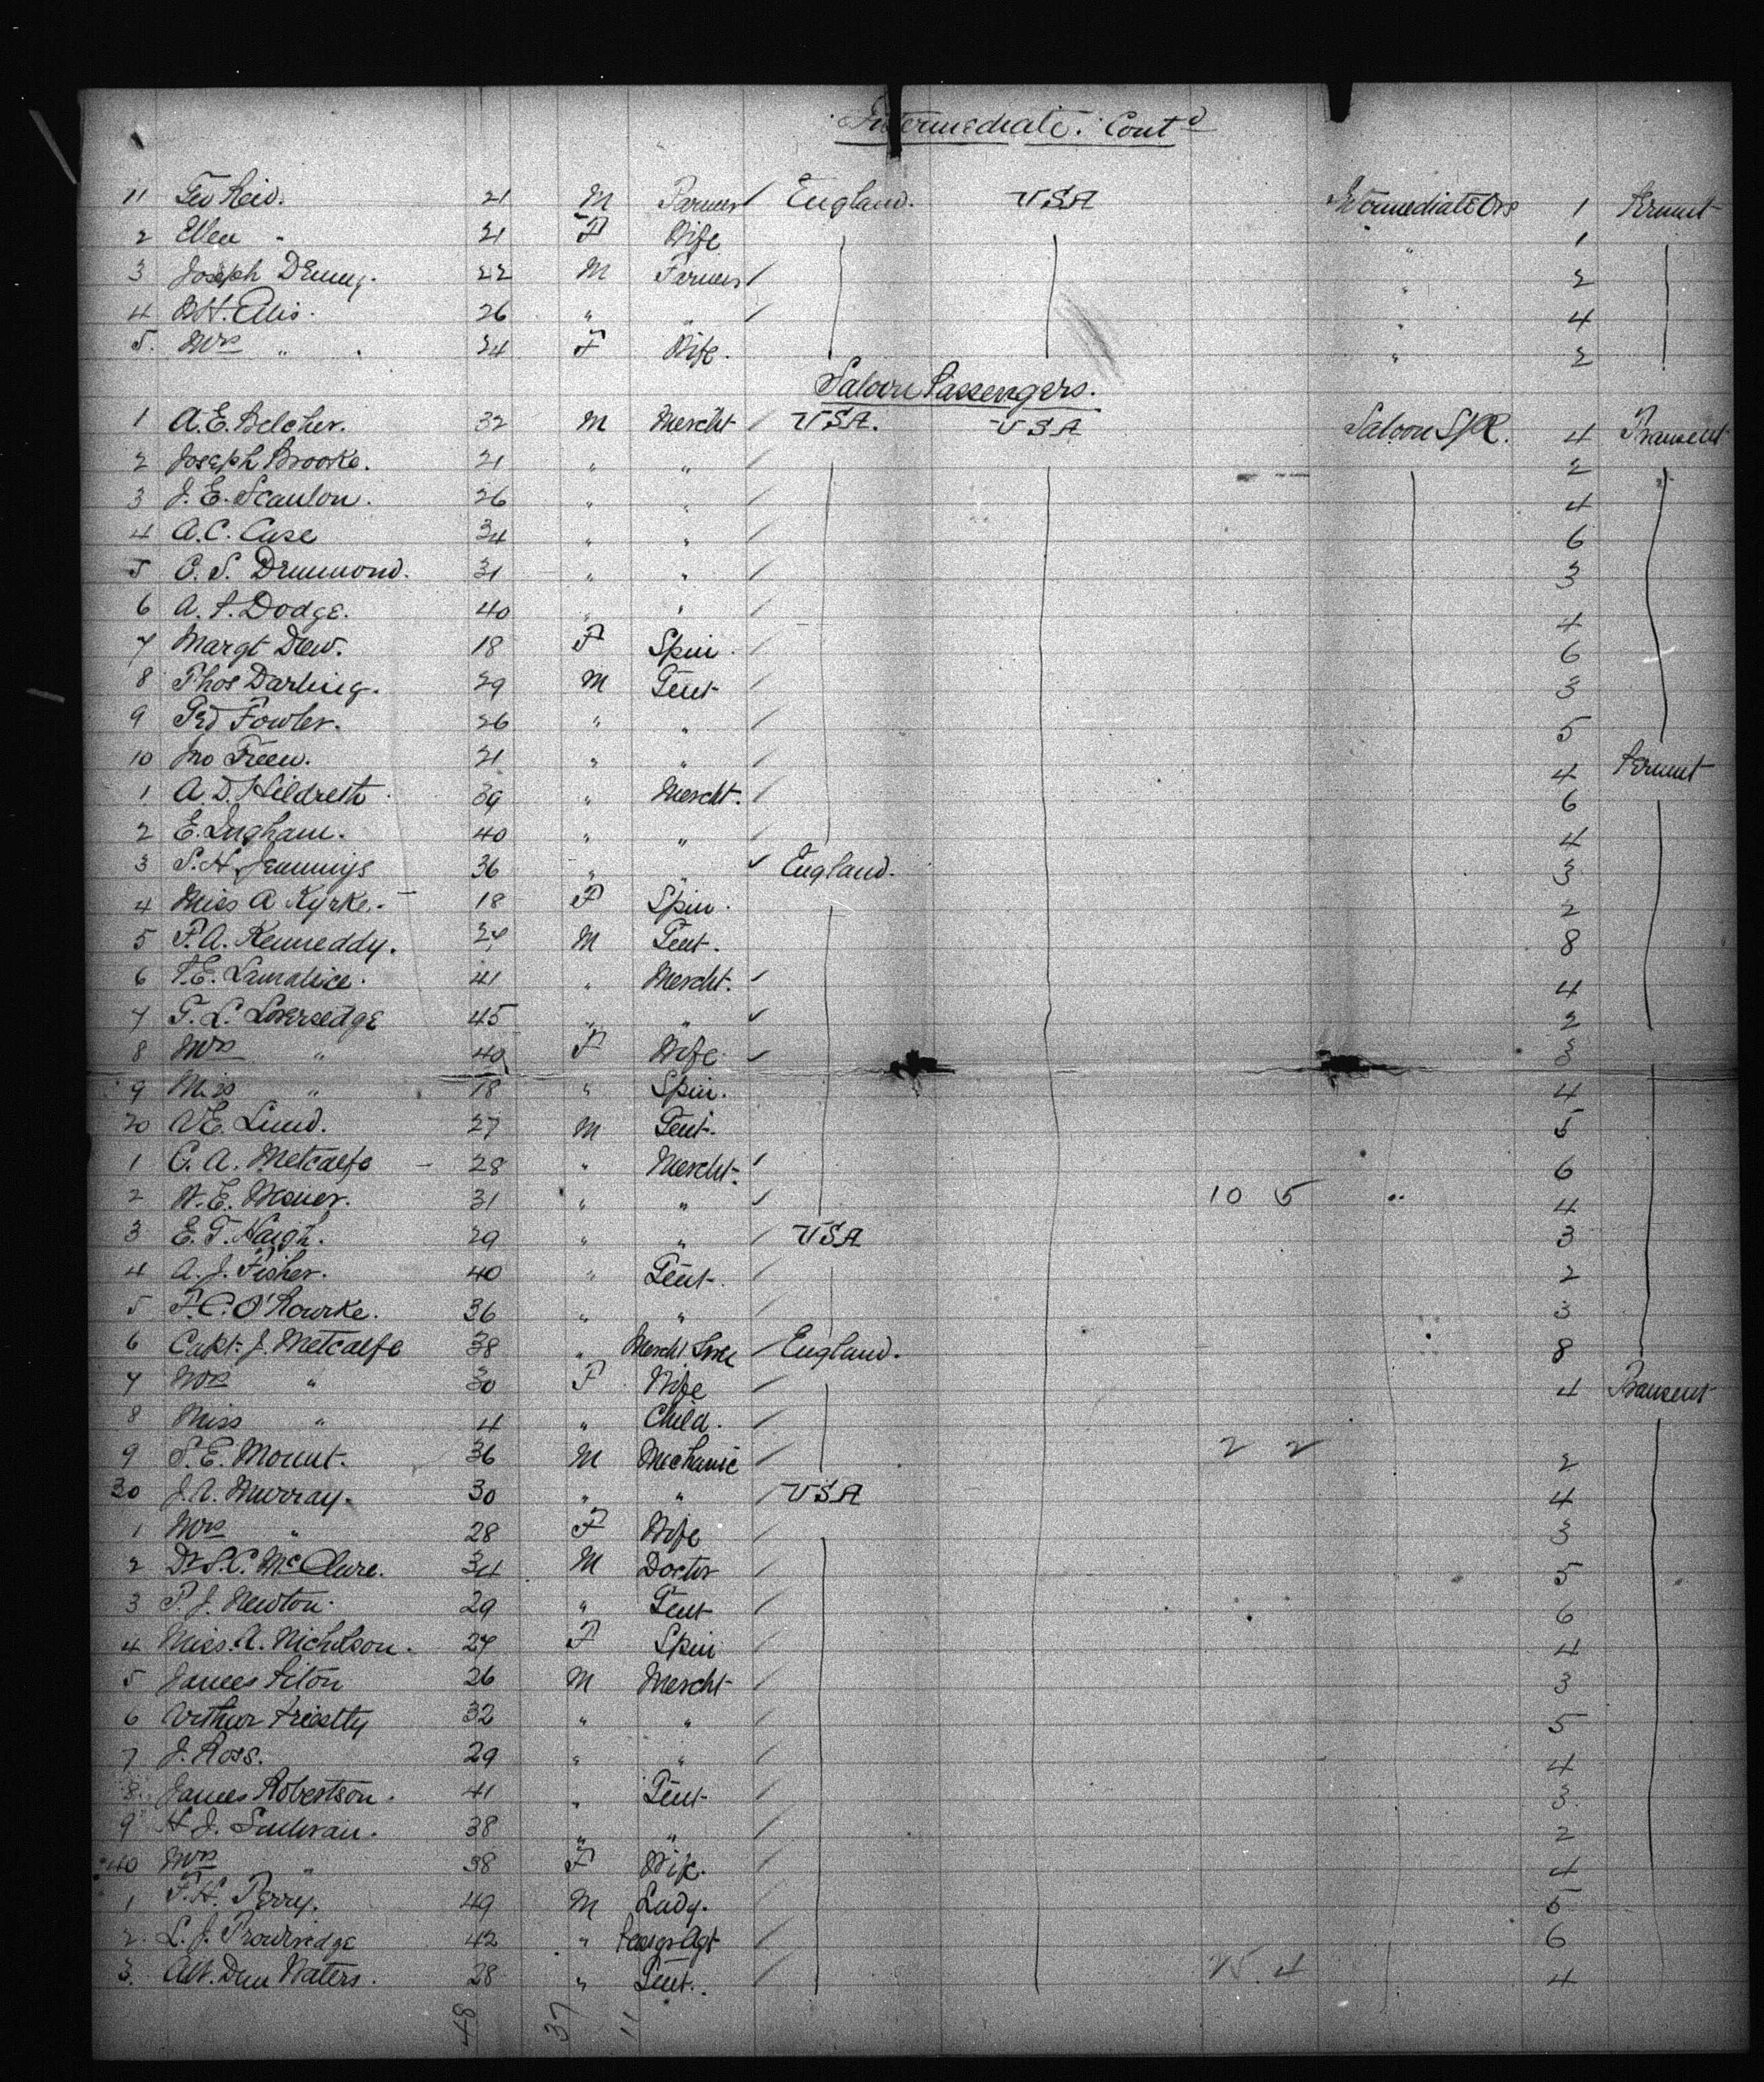 Intermediate. Contd
11 Geo Reid. 21 M Farmer / England. USA Intermediate Drs 1 Permnt
2 Ellen " 21 F Wife " 1
3 Joseph Denny. 22 M Farmer / " 2
4 B.H. Ellis. 26 " " / " 4
5. Mrs " 24 F Wife. " 2
Saloon Passengers.
1 A.E. Belcher. 32 M Mercht / USA. USA Saloon 4 Transcent
2 Joseph Brooke. 21 " " / 2
3 J.E. Scanlon. 26 " " / 4
4 A.C. Case 34 " " / 6
5 C.S. Drummond. 31 " " / 3
6 A.P. Dodge. 40 " " / 4
7 Margt Dew. 18 F Spin. / 6
8 Thos Darling. 29 M Gent / 3
9 Fowler. 26 " " / 5
10 Jno Freen. 21 " " / 4 Permnt
1 A.D. Hildreth 39 " Mercht. / 6
2 E. Ingham. 40 " " / 4
3 S.H. Jennings 36 " " / England. 3
4 Miss A Kyrke. 18 F Spin. 2
5 F.A. Kenneddy. M Gent. 8
6 41 " Mercht. / 4
7 G.L. Loversedge 45 " " / 2
8 Mrs " 40 F Wife / 3
9 Miss " 18 " Spin. 4
20 Lund. 27 M Gent. 5
1 C.A. Metcalfe 28 " Mercht. / 6
2 W.E. 31 " " / 10 5 " 4
3 E.T. Haigh. 29 " " / USA 3
4 A.J. Fisher. 40 " Gent. / 2
5 F.C. O'Rourke. 36 " " / 3
6 Capt. J. Metcalfe 38 " Mercht / England. 8
7 Mrs " 30 F Wife / 4 Transcent
8 Miss " 4 " Child. /
9 S.E. Mount. 36 M Mechanic / 2 2 2
30 J.A. Murray. 30 " " / USA 4
1 Mrs " 28 F Wife / 3
2 Dr S.C. McClure. 34 M Doctor / 5
3 P.J. Newton. 29 " Gent / 6
4 Miss A. Nicholson. 27 F Spin / 4
5 James Piton 26 M Mercht / 3
6 Arthur Priestly 32 " " / 5
7 J. Ross. 29 " " / 4
8. James Robertson. 41 " Gent / 3.
9 H J. Sullivan. 38 " " / 2
40 Mrs " 38 F Wife. / 4
1 F.H. Perry. 49 M Lady. / 5
2. L.J. 42 " Passgr Agt / 6
3. Alb. Dun Waters. 28 " Gent. / 25. 4 4
48 37 11